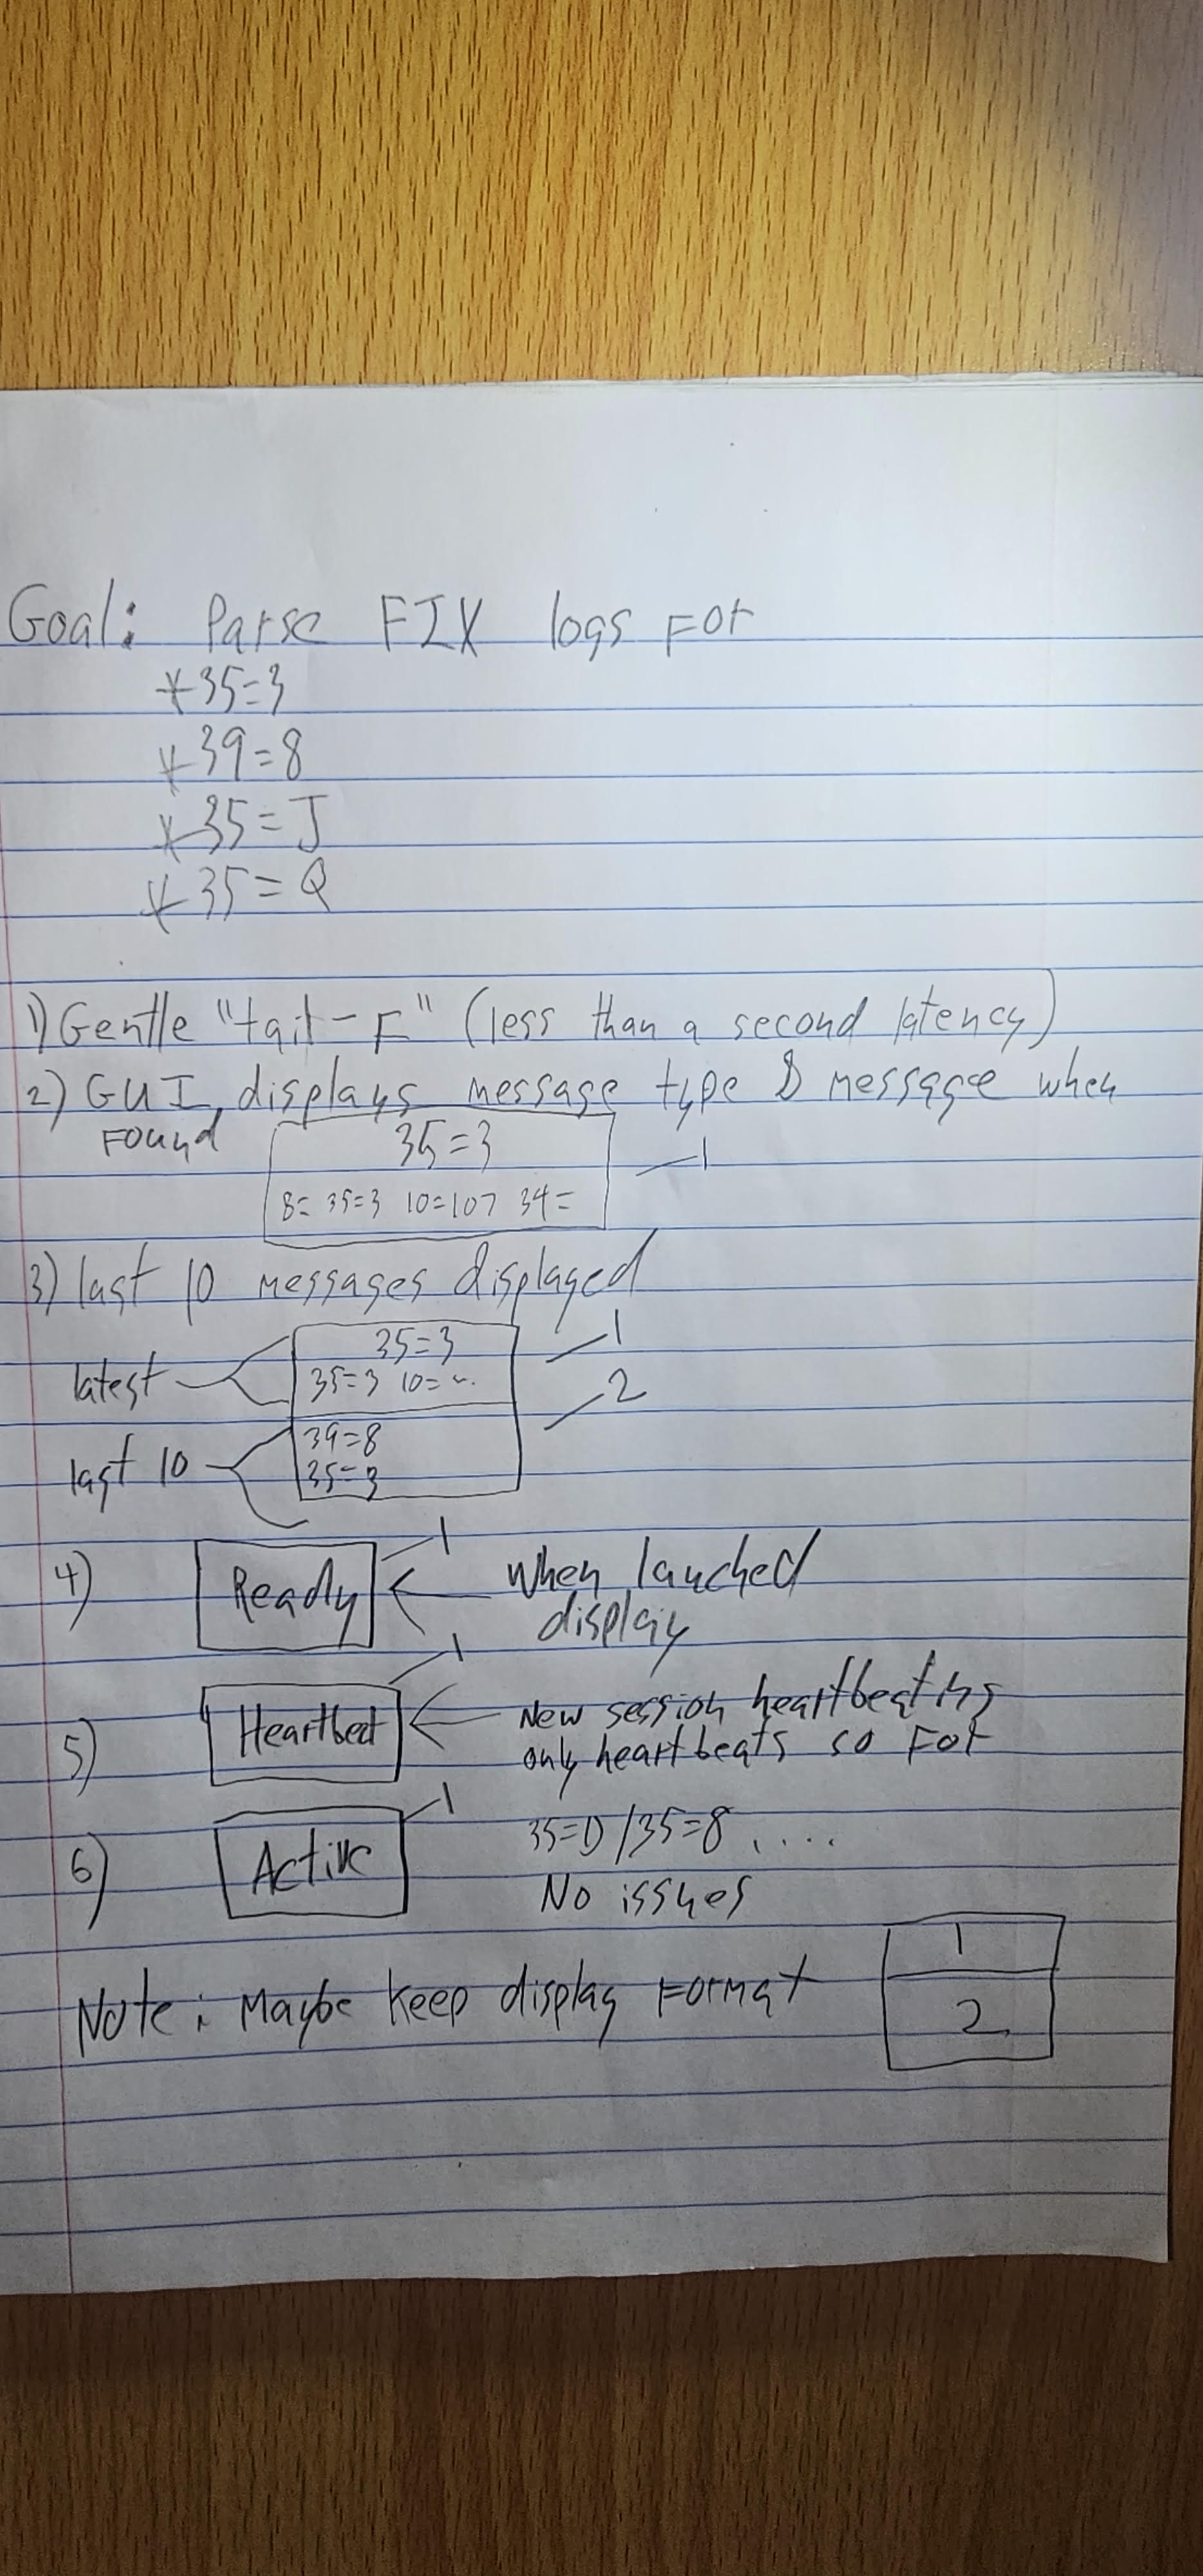 Goal: Parse FIX logs for
* 35=3
* 39=8
* 35=J
* 35=Q
1) Gentle "tail -F" (less than a second latency)
2) GUI, displays message type & message when
found
35=3
1
8= 35=3 10=107 34=
3) last 10 messages displayed
35=3
1
latest
35=3 10=~.
2
39=8
last 10
35=3
4) Ready
1
When lauched
display
5) Heartbeat
1
New session heartbeating
only heartbeats so far
6) Active
1
35=D/35=8, ....
No issues
Note: Maybe keep display format
1
2